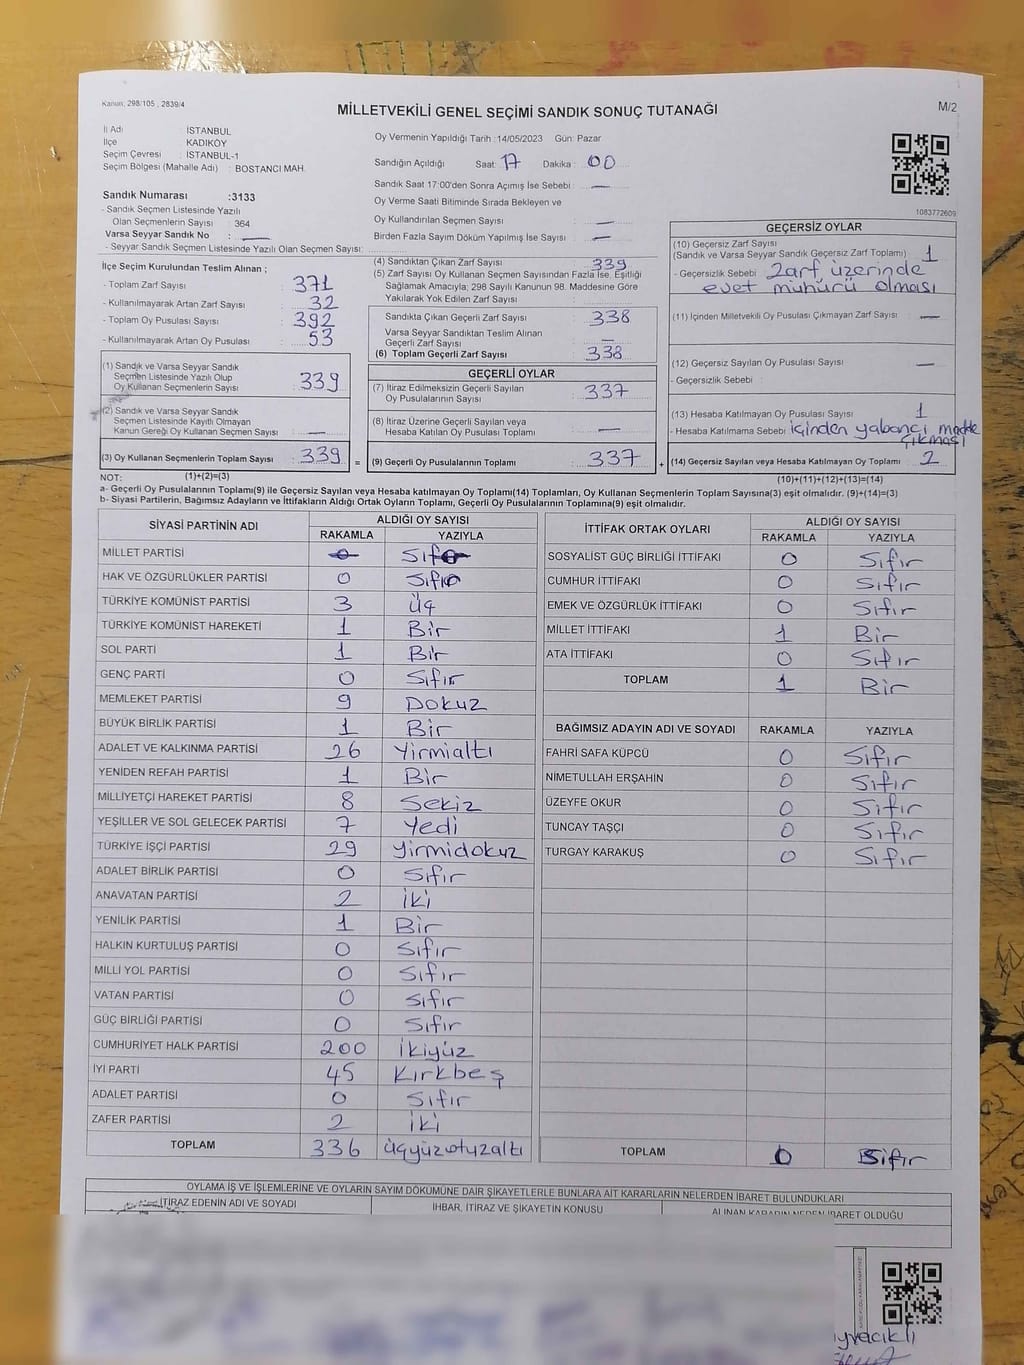 Kanun; 298/105 , 2839/4
MİLLETVEKİLİ GENEL SEÇİMİ SANDIK SONUÇ TUTANAĞI
M/2
İl Adı : İSTANBUL
İlçe : KADIKÖY
Seçim Çevresi : İSTANBUL-1
Seçim Bölgesi (Mahalle Adı) : BOSTANCI MAH.
Sandık Numarası :3133
- Sandık Seçmen Listesinde Yazılı
Olan Seçmenlerin Sayısı : 364
Varsa Seyyar Sandık No : —
- Seyyar Sandık Seçmen Listesinde Yazılı Olan Seçmen Sayısı:
Oy Vermenin Yapıldığı Tarih :14/05/2023 Gün: Pazar
Sandığın Açıldığı Saat : 17 Dakika : 00
Sandık Saat 17:00'den Sonra Açılmış İse Sebebi : —
Oy Verme Saati Bitiminde Sırada Bekleyen ve
Oy Kullandırılan Seçmen Sayısı : —
Birden Fazla Sayım Döküm Yapılmış İse Sayısı : —
1083772609
İlçe Seçim Kurulundan Teslim Alınan ;
- Toplam Zarf Sayısı : 371
- Kullanılmayarak Artan Zarf Sayısı : 32
- Toplam Oy Pusulası Sayısı : 392
- Kullanılmayarak Artan Oy Pusulası : 53
(1) Sandık ve Varsa Seyyar Sandık
Seçmen Listesinde Yazılı Olup
Oy Kullanan Seçmenlerin Sayısı : 339
(2) Sandık ve Varsa Seyyar Sandık
Seçmen Listesinde Kayıtlı Olmayan
Kanun Gereği Oy Kullanan Seçmen Sayısı : —
(3) Oy Kullanan Seçmenlerin Toplam Sayısı : 339
(1)+(2)=(3)
(4) Sandıktan Çıkan Zarf Sayısı : 339
(5) Zarf Sayısı Oy Kullanan Seçmen Sayısından Fazla İse, Eşitliği
Sağlamak Amacıyla; 298 Sayılı Kanunun 98. Maddesine Göre
Yakılarak Yok Edilen Zarf Sayısı : —
Sandıkta Çıkan Geçerli Zarf Sayısı : 338
Varsa Seyyar Sandıktan Teslim Alınan
Geçerli Zarf Sayısı : —
(6) Toplam Geçerli Zarf Sayısı : 338
GEÇERLİ OYLAR
(7) İtiraz Edilmeksizin Geçerli Sayılan
Oy Pusulalarının Sayısı : 337
(8) İtiraz Üzerine Geçerli Sayılan veya
Hesaba Katılan Oy Pusulası Toplamı : —
= (9) Geçerli Oy Pusulalarının Toplamı : 337 +
GEÇERSİZ OYLAR
(10) Geçersiz Zarf Sayısı
(Sandık ve Varsa Seyyar Sandık Geçersiz Zarf Toplamı) : 1
- Geçersizlik Sebebi : Zarf üzerinde
evet mühürü olması
(11) İçinden Milletvekili Oy Pusulası Çıkmayan Zarf Sayısı : —
(12) Geçersiz Sayılan Oy Pusulası Sayısı : —
- Geçersizlik Sebebi :
(13) Hesaba Katılmayan Oy Pusulası Sayısı : 1
- Hesaba Katılmama Sebebi : içinden yabancı madde
çıkması
(14) Geçersiz Sayılan veya Hesaba Katılmayan Oy Toplamı : 2
(10)+(11)+(12)+(13)=(14)
NOT:
a- Geçerli Oy Pusulalarının Toplamı(9) ile Geçersiz Sayılan veya Hesaba katılmayan Oy Toplamı(14) Toplamları, Oy Kullanan Seçmenlerin Toplam Sayısına(3) eşit olmalıdır. (9)+(14)=(3)
b- Siyasi Partilerin, Bağımsız Adayların ve İttifakların Aldığı Ortak Oyların Toplamı, Geçerli Oy Pusulalarının Toplamına(9) eşit olmalıdır.
SİYASİ PARTİNİN ADI ALDIĞI OY SAYISI
RAKAMLA YAZIYLA
MİLLET PARTİSİ 0 Sıfır
HAK VE ÖZGÜRLÜKLER PARTİSİ 0 Sıfır
TÜRKİYE KOMÜNİST PARTİSİ 3 üç
TÜRKİYE KOMÜNİST HAREKETİ 1 Bir
SOL PARTİ 1 Bir
GENÇ PARTİ 0 Sıfır
MEMLEKET PARTİSİ 9 Dokuz
BÜYÜK BİRLİK PARTİSİ 1 Bir
ADALET VE KALKINMA PARTİSİ 26 Yirmialtı
YENİDEN REFAH PARTİSİ 1 Bir
MİLLİYETÇİ HAREKET PARTİSİ 8 Sekiz
YEŞİLLER VE SOL GELECEK PARTİSİ 7 Yedi
TÜRKİYE İŞÇİ PARTİSİ 29 yirmidokuz
ADALET BİRLİK PARTİSİ 0 Sıfır
ANAVATAN PARTİSİ 2 iki
YENİLİK PARTİSİ 1 Bir
HALKIN KURTULUŞ PARTİSİ 0 Sıfır
MİLLİ YOL PARTİSİ 0 Sıfır
VATAN PARTİSİ 0 Sıfır
GÜÇ BİRLİĞİ PARTİSİ 0 Sıfır
CUMHURİYET HALK PARTİSİ 200 ikiyüz
İYİ PARTİ 45 Kırkbeş
ADALET PARTİSİ 0 Sıfır
ZAFER PARTİSİ 2 iki
TOPLAM 336 üçyüzotuzaltı
İTTİFAK ORTAK OYLARI ALDIĞI OY SAYISI
RAKAMLA YAZIYLA
SOSYALİST GÜÇ BİRLİĞİ İTTİFAKI 0 Sıfır
CUMHUR İTTİFAKI 0 Sıfır
EMEK VE ÖZGÜRLÜK İTTİFAKI 0 Sıfır
MİLLET İTTİFAKI 1 Bir
ATA İTTİFAKI 0 Sıfır
TOPLAM 1 Bir
BAĞIMSIZ ADAYIN ADI VE SOYADI RAKAMLA YAZIYLA
FAHRİ SAFA KÜPCÜ 0 Sıfır
NİMETULLAH ERŞAHİN 0 Sıfır
ÜZEYFE OKUR 0 Sıfır
TUNCAY TAŞÇI 0 Sıfır
TURGAY KARAKUŞ 0 Sıfır
TOPLAM 0 Sıfır
OYLAMA İŞ VE İŞLEMLERİNE VE OYLARIN SAYIM DÖKÜMÜNE DAİR ŞİKAYETLERLE BUNLARA AİT KARARLARIN NELERDEN İBARET BULUNDUKLARI
İTİRAZ EDENİN ADI VE SOYADI İHBAR, İTİRAZ VE ŞİKAYETİN KONUSU ALINAN KARARIN NEDEN İBARET OLDUĞU